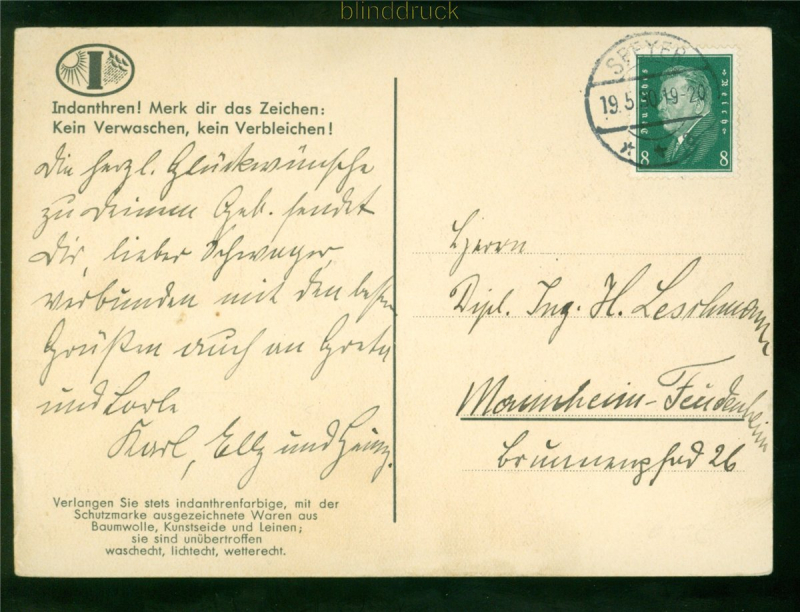 blinddruck
I
Indanthren! Merk dir das Zeichen:
Kein Verwaschen, kein Verbleichen!
Die herzl. Glückwünsche
zu Deinem Geb. sendet
Dir, lieber Schwager,
verbunden mit den besten
Grüßen auch an Greta
und Lorle
Karl, Elly und Heinz.
Verlangen Sie stets indanthrenfarbige, mit der
Schutzmarke ausgezeichnete Waren aus
Baumwolle, Kunstseide und Leinen;
sie sind unübertroffen
waschecht, lichtecht, wetterecht.
SPEYER
19.5.30.19-20
Deutsches Reich
8 8
Herrn
Dipl. Ing. H. Leschmann
Mannheim-Feudenheim
Brunnenpfad 26